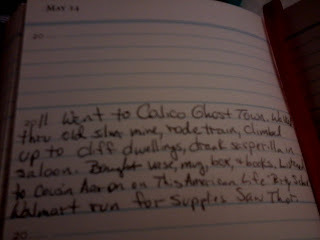 MAY 14
20
2011 Went to Calico Ghost Town. Walked
thru old silver mine, rode train, climbed
up to cliff dwellings, drank sasperilla in
saloon. Bought vase, mug, box, 4 books. Listened
to Cousin Aaron on This American Life.
Walmart run for supplies Saw Thor
20